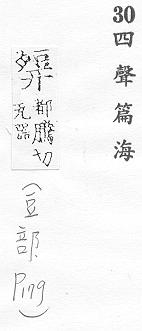 30 四聲篇海
都騰切
瓦器
(豆部 Ping)